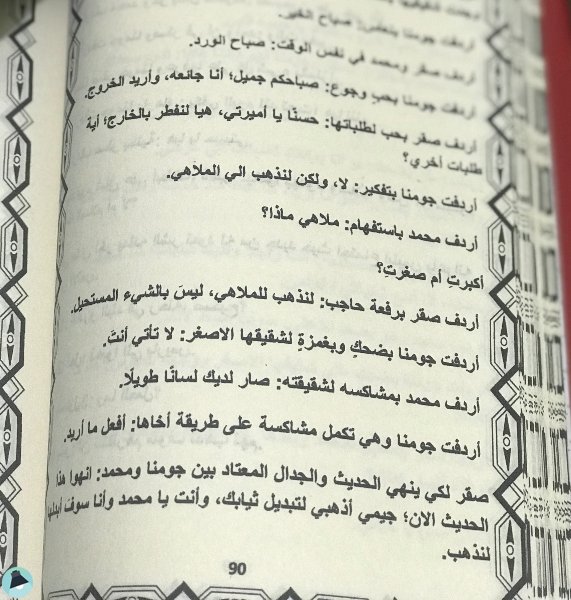 أردفت جومنا بنعاس: صباح الخير.
أردف صقر ومحمد في نفس الوقت: صباح الورد.
أردفت جومنا بحبٍ وجوع: صباحكم جميل؛ أنا جائعه، وأريد الخروج.
أردف صقر بحب لطلباتها: حسنًا يا أميرتي، هيا لنفطر بالخارج؛ أية
طلبات أخري؟
أردفت جومنا بتفكير: لا، ولكن لنذهب الي الملاهي.
أردف محمد باستفهام: ملاهي ماذا؟
أكبرتِ أم صغرتِ؟
أردف صقر برفعة حاجب: لنذهب للملاهي، ليسَ بالشيء المستحيل.
أردفت جومنا بضحكٍ وبغمزةٍ لشقيقها الاصغر: لا تأتي أنتَ.
أردف محمد بمشاكسه لشقيقته: صار لديك لسانًا طويلًا.
أردفت جومنا وهي تكمل مشاكسة على طريقة أخاها: أفعل ما أريد.
صقر لكي ينهي الحديث والجدال المعتاد بين جومنا ومحمد: انهوا هذا
الحديث الان؛ جيمي أذهبي لتبديل ثيابك، وأنت يا محمد وأنا سوفَ
لنذهب.
90